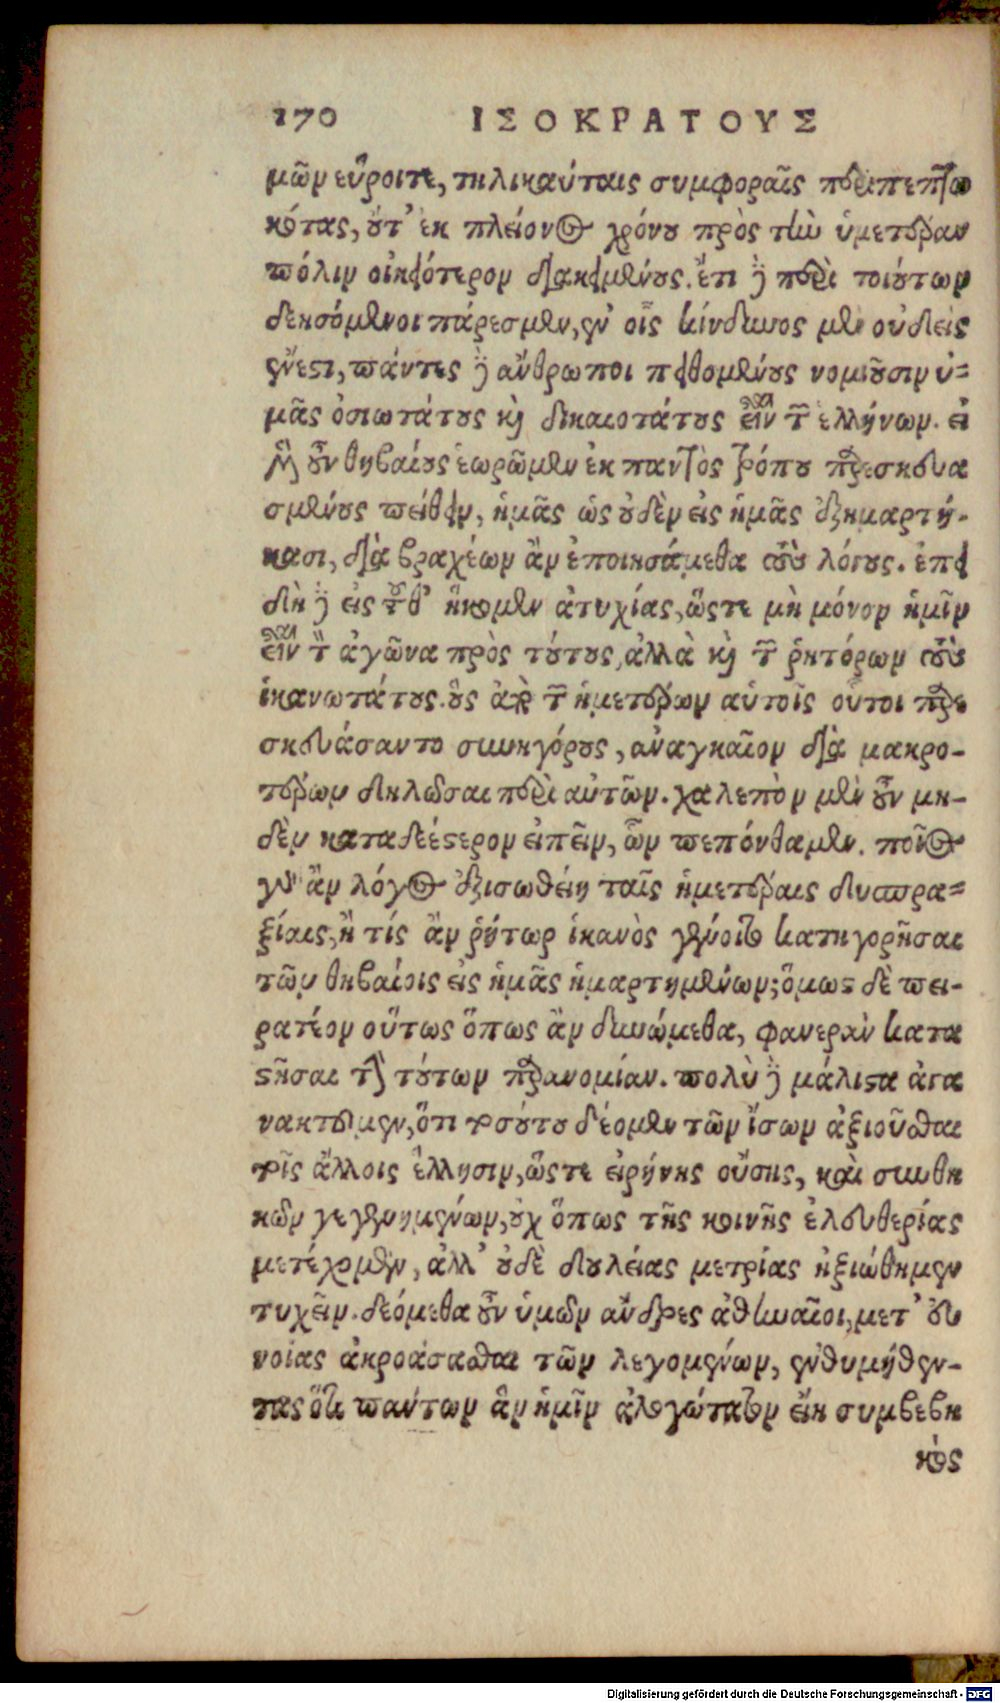 170 ΙΣΟΚΡΑΤΟΥΣ
μῶν εὕροιτε, τηλικαύταις συμφοραῖς περιπεπτω
κότας, ȣ̓τ' ἐκ πλείονος χρόνȣ πρὸς τὴν ὑμετέραν
πόλιν οἰκειότερον διακειμένȣς. ἔτι δὲ περὶ τοιȣ́των
δεησόμενοι πάρεσμεν, ἐν οἷς κίνδυνος μὲν οὐδεὶς
ἔνεστι, πάντες δὲ ἄνθρωποι πειθομένȣς νομιοῦσιν ὑ-
μᾶς ὁσιωτάτȣς καὶ δικαιοτάτȣς εἶναι τῶν ἑλλήνων. εἰ
μὲν ȣ̓͂ν θηβαίȣς ἑωρῶμεν ἐκ παντὸς τρόπȣ παρεσκευα
σμένȣς πείθειν, ἡμᾶς ὡς ȣ̓δὲν εἰς ἡμᾶς ἐξημαρτή-
κασι, διὰ βραχέων ἂν ἐποιησάμεθα τοὺς λόγȣς. ἐπει
δὴ δὲ εἰς τοῦθ' ἥκομεν ἀτυχίας, ὥστε μὴ μόνον ἡμῖν
εἶναι τὸν ἀγῶνα πρὸς τȣ́τȣς, ἀλλὰ καὶ τῶν ῥητόρων τοὺς
ἱκανωτάτȣς. ȣ̔̀ς ἀπὸ τῶν ἡμετέρων αὑτοῖς οὗτοι παρε
σκευάσαντο συνηγόρȣς, ἀναγκαῖον διὰ μακρο-
τέρων δηλῶσαι περὶ αὐτῶν. χαλεπὸν μὲν ȣ̓͂ν μη-
δὲν καταδεέστερον εἰπεῖν, ὧν πεπόνθαμεν. ποῖος
γὰρ ἂν λόγος ἐξισωθείη ταῖς ἡμετέραις δυσπρα-
ξίαις, ἢ τίς ἂν ῥήτωρ ἱκανὸς γένοιτο κατηγορῆσαι
τῶν θηβαίοις εἰς ἡμᾶς ἡμαρτημένων; ὅμως δὲ πει-
ρατέον οὕτως ὅπως ἂν δυνώμεθα, φανερὰν κατα
στῆσαι τὴν τȣ́των παρανομίαν. πολὺ δὲ μάλιστα ἀγα
νακτοῦμεν, ὅτι τοσȣ́τȣ δέομεν τῶν ἴσων ἀξιοῦσθαι
τοῖς ἄλλοις ἕλλησιν, ὥστε εἰρήνης οὔσης, καὶ συνθη
κῶν γεγενημένων, ȣ̓χ ὅπως τῆς κοινῆς ἐλευθερίας
μετέχομεν, ἀλλ' ȣ̓δὲ δȣλείας μετρίας ἠξιώθημεν
τυχεῖν. δεόμεθα ȣ̓͂ν ὑμῶν ἄνδρες ἀθηναῖοι, μετ' εὐ
νοίας ἀκροάσασθαι τῶν λεγομένων, ἐνθυμηθέν-
τας ὅτι πάντων ἂν ἡμῖν ἀλογώτατον εἴη συμβεβη
κὸς
Digitalisierung gefördert durch die Deutsche Forschungsgemeinschaft - DFG